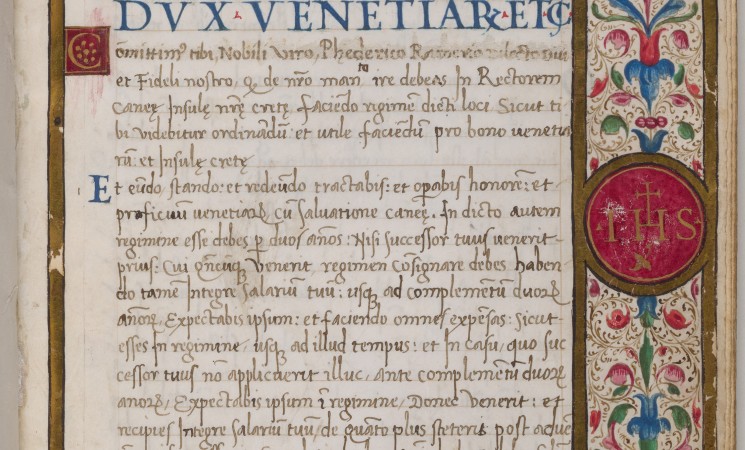 DVX VENETIARꝜ ETC̃
Com̃ittim⁹ tibi, Nobili Viro, Phederico Raynerio dilecto Ciui
et Fideli nostro, ꝙ de nr̃o man.to ire debeas In Rectorem
Caneę Insulę nr̃ę cretę. faciẽdo regimẽ dicti loci. Sicut ti-
bi videbitur ordinandũ: et utile faciẽdũ pro bono venetia
rũ: et Insulę cretę
Et eũdo stando: et redeũdo tractabis: et oꝑabis honorẽ: et
proficuũ venetiarꝝ, cũ saluatione caneę. In dicto autem
regimine esse debes ꝑ duos años: Nisi successor tuus venerit
prius: Cui qñcũqꝫ venerit, regimen Cõsignare debes haben
do tamẽ Integre Salariũ tuũ: usqꝫ ad complemẽtũ duorꝝ
añorꝝ, Expectabis ipsum: et faciendo omnes expẽsas: Sicut
esses In regimine, usqꝫ ad illud tempus: et In Casu, quo suc
cessor tuus nõ applicuerit illuc, ante complemẽtũ duorꝝ
anorꝝ, Expectabis ipsum ĩ regimine, Donec Venerit: et
recipies Integre Salariũ tuũ, de quãto plus steteris post adue
IHS